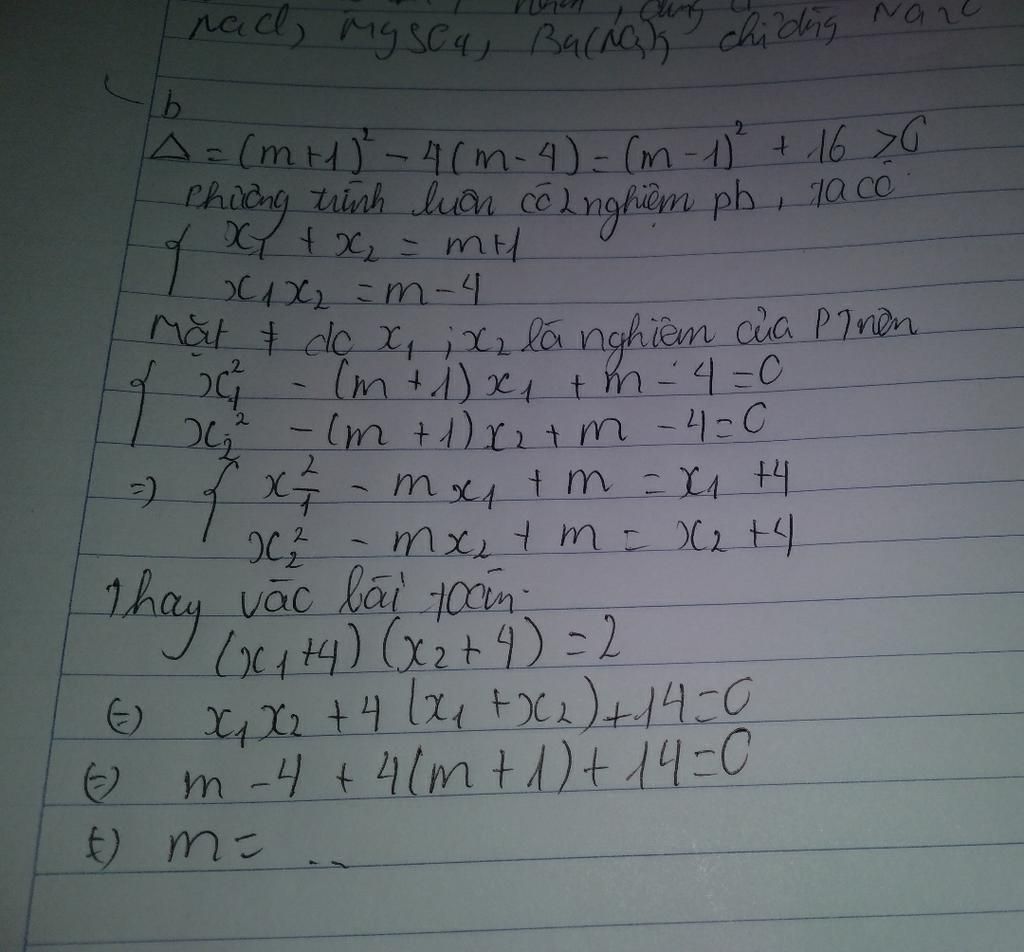 NaCl, MgSO4, Ba(NO3)2 chỉ dùng
b
Δ = (m+1)² - 4(m-4) = (m-1)² + 16 > 0
Phương trình luôn có 2 nghiệm pb, ta có
{ x₁ + x₂ = m+1
x₁x₂ = m-4
Mặt ≠ do x₁ ; x₂ là nghiệm của PT nên
{ x₁² - (m+1)x₁ + m - 4 = 0
x₂² - (m+1)x₂ + m - 4 = 0
=> { x₁² - mx₁ + m = x₁ + 4
x₂² - mx₂ + m = x₂ + 4
Thay vào bài toán
(x₁+4)(x₂+4) = 2
(=) x₁x₂ + 4(x₁+x₂) + 14 = 0
(=) m - 4 + 4(m+1) + 14 = 0
(=) m = ..